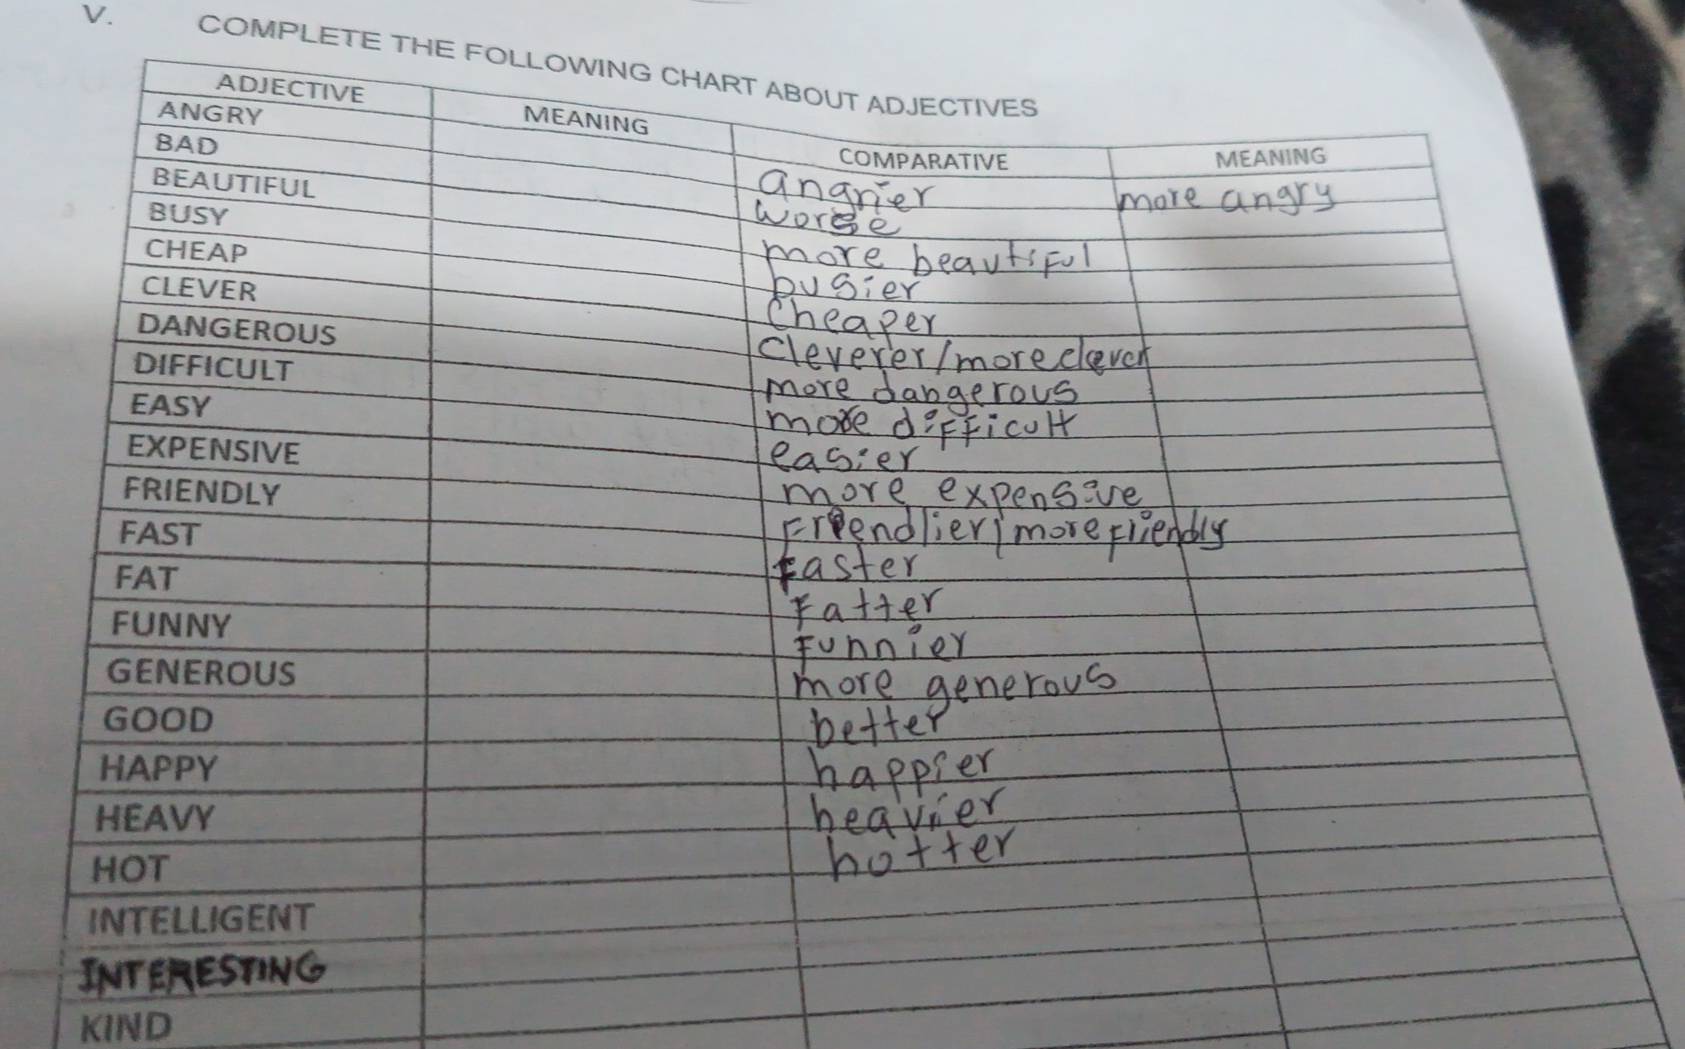 V. COMPLETE THE FOLLOWING CHART ABOUT ADJECTIVES
ADJECTIVE MEANING COMPARATIVE MEANING
ANGRY angrier more angry
BAD worse
BEAUTIFUL more beautiful
BUSY busier
CHEAP cheaper
CLEVER cleverer/more clever
DANGEROUS more dangerous
DIFFICULT more difficult
EASY easier
EXPENSIVE more expensive
FRIENDLY Friendlier/more friendly
FAST faster
FAT Fatter
FUNNY Funnier
GENEROUS more generous
GOOD better
HAPPY happier
HEAVY heavier
HOT hotter
INTELLIGENT
INTERESTING
KIND